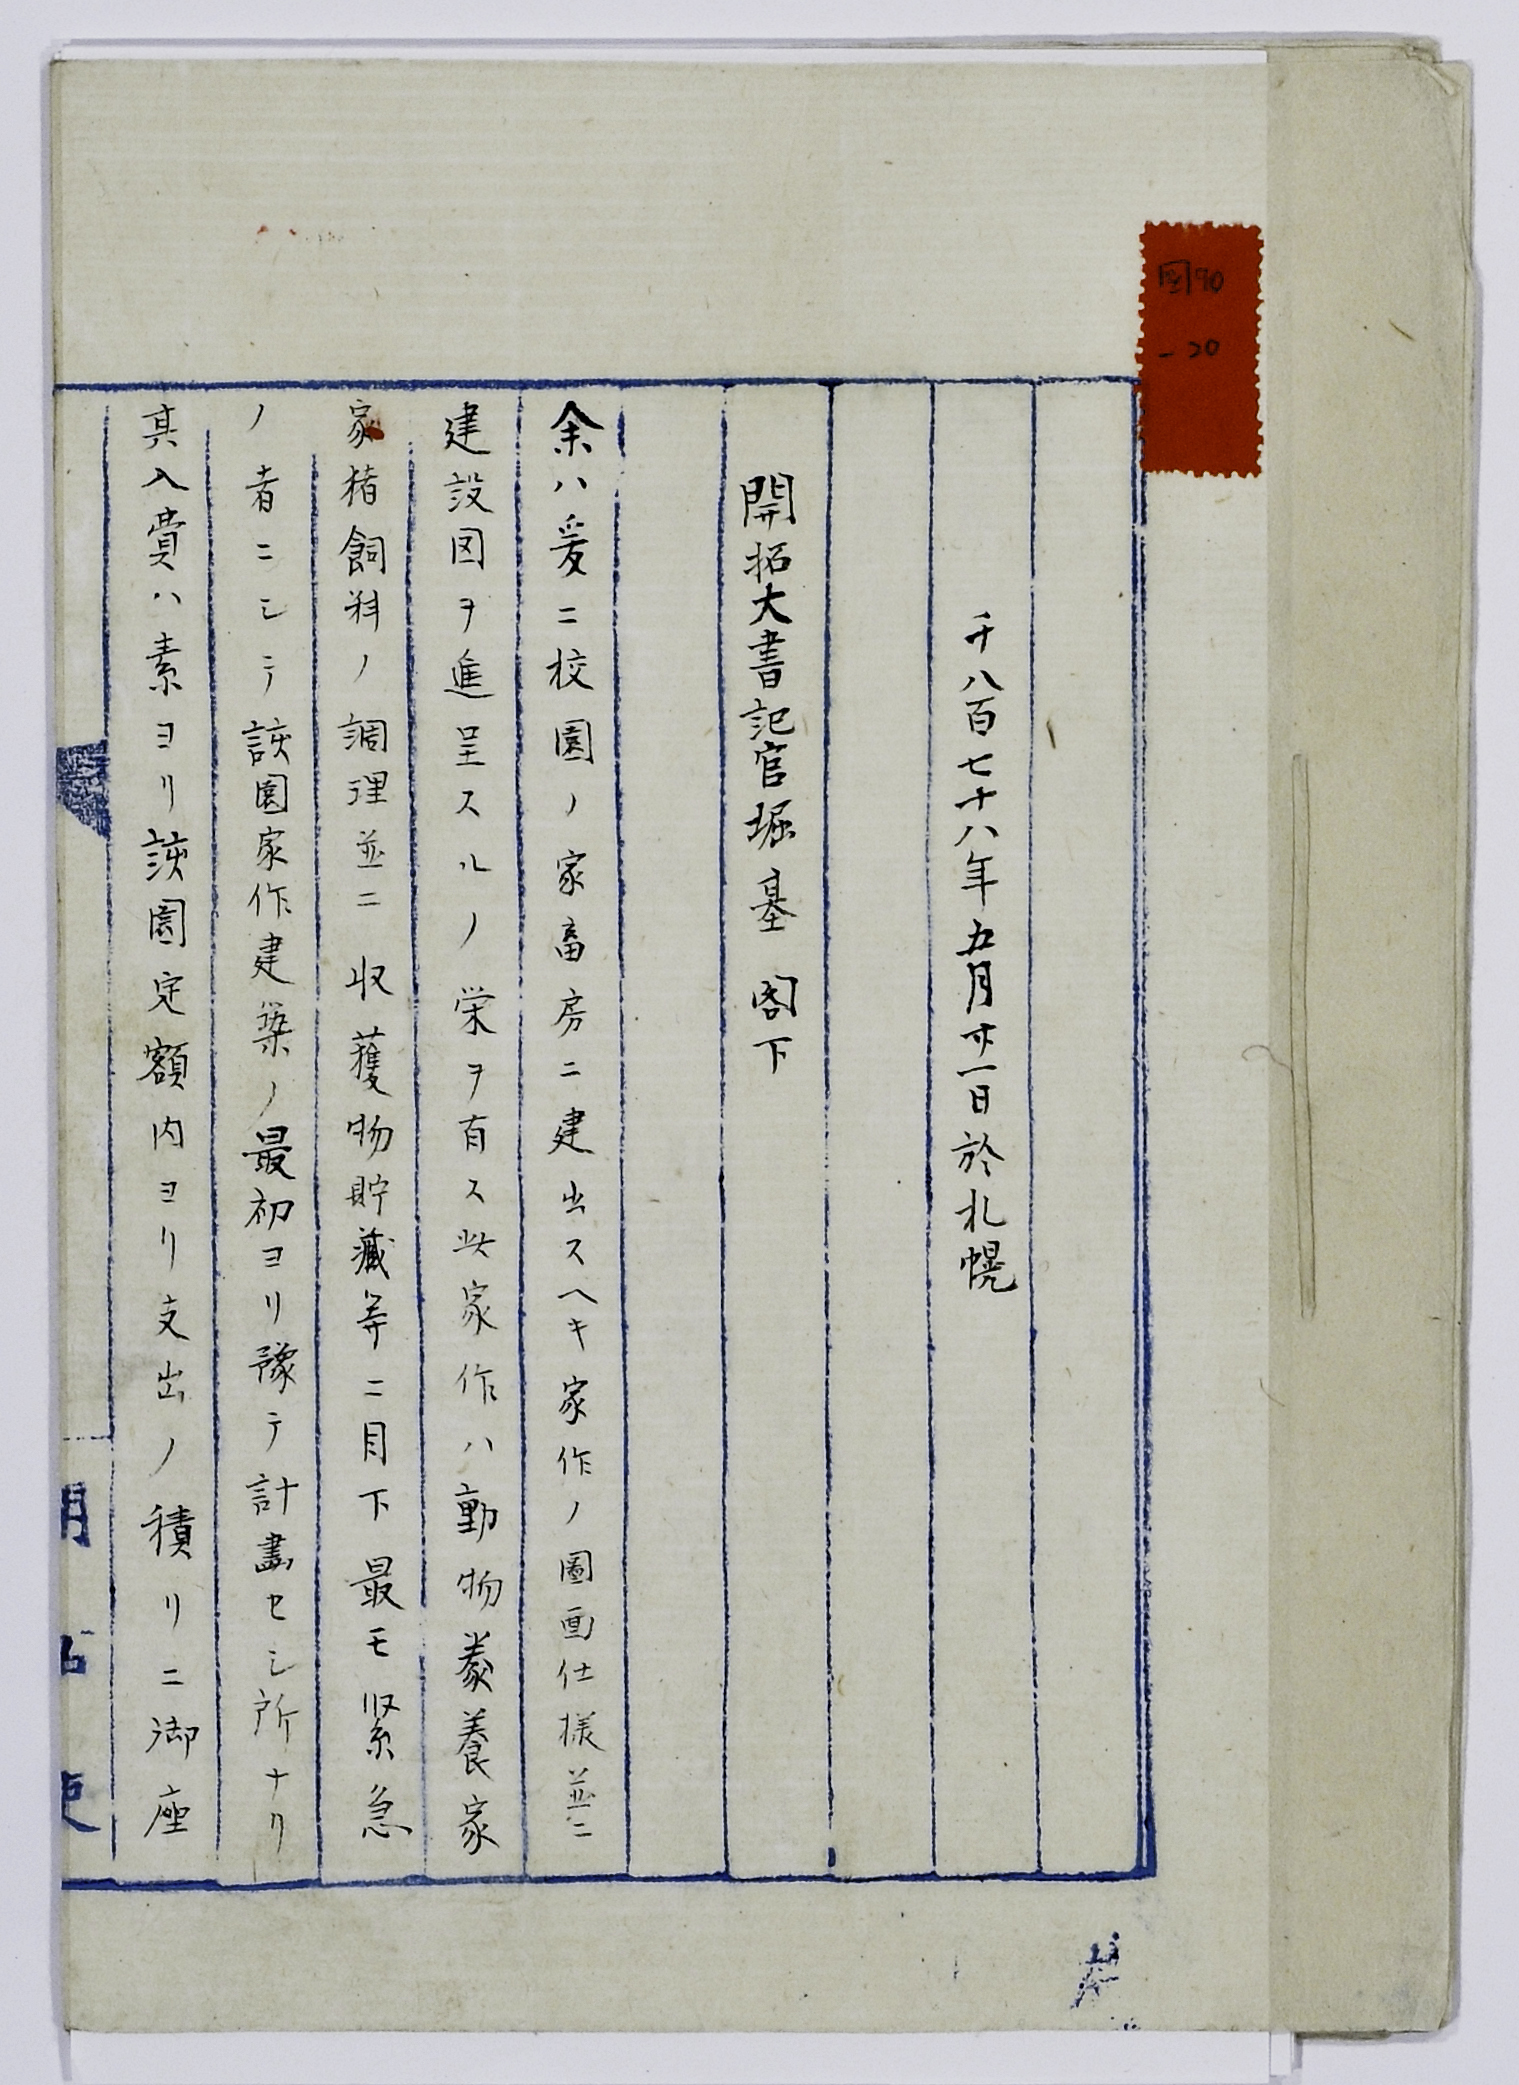 千八百七十八年五月廿一日於札幌
開拓大書記官堀基閣下
余ハ爰ニ校園ノ家畜房ニ建出スヘキ家作ノ圖画仕様並ニ
建設図ヲ進呈スルノ栄ヲ有ス此家作ハ動物豢養家
家猪飼料ノ調理並ニ収獲物貯蔵等ニ目下最モ緊急
ノ者ニシテ該園家作建築ノ最初ヨリ豫テ計畵セシ所ナリ
其入費ハ素ヨリ該園定額内ヨリ支出ノ積リニ御座